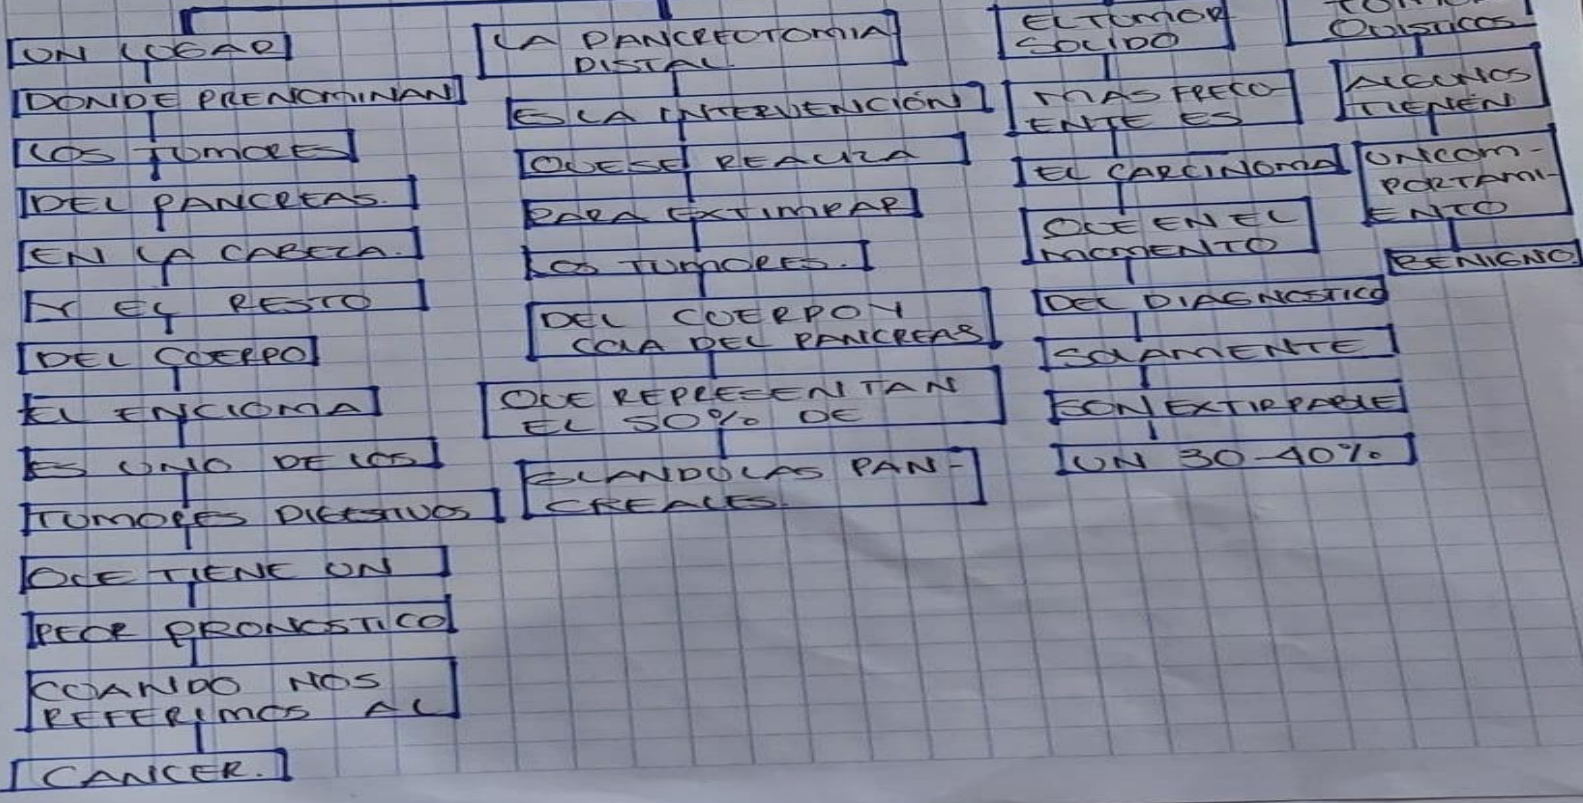 UN LUGAR
DONDE PRENOMINAN
LOS TUMORES
DEL PANCREAS.
EN LA CABEZA.
Y EL RESTO
DEL CUERPO
EL ENCIOMA
ES UNO DE LOS
TUMORES DIGESTIVOS
QUE TIENE UN
PEOR PRONOSTICO
CUANDO NOS
REFERIMOS AL
CANCER.
LA PANCREOTOMIA
DISTAL
ES LA INTERVENCIÓN
QUE SE REALIZA
PARA EXTIMPAR
LOS TUMORES.
DEL CUERPO Y
COLA DEL PANCREAS
QUE REPRECENTAN
EL 50% DE
GLANDULAS PAN-
CREALES.
EL TUMOR
SOLIDO
MAS FRECU-
ENTE ES
EL CARCINOMA
QUE EN EL
MOMENTO
DEL DIAGNOSTICO
SOLAMENTE
SON EXTIRPABLE
UN 30-40%
QUISTICOS
ALGUNOS
TIENEN
UN COM-
PORTAMI-
ENTO
BENIGNO